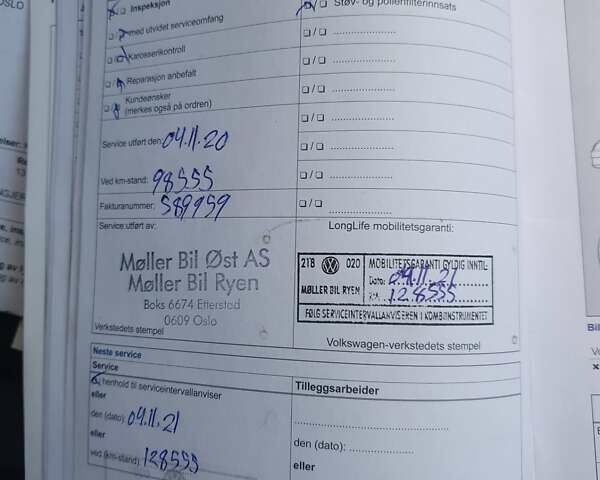 OSLO
Inspeksjon
Støv- og pollenfilterinnsats
med utvidet serviceomfang
❑ / ❑ ....................
Karosserikontroll
❑ / ❑ ....................
Reparasjon anbefalt
❑ / ❑ ....................
Kundeønsker
(merkes også på ordren)
❑ / ❑ ....................
Service utført den: 04.11.20
❑ / ❑ ....................
Ved km-stand: 98555
❑ / ❑ ....................
Fakturanummer: 589959
❑ / ❑ ....................
Service utført av:
LongLife mobilitetsgaranti:
Møller Bil Øst AS
Møller Bil Ryen
Boks 6674 Etterstad
0609 Oslo
Verkstedets stempel
21B VW 020
MØLLER BIL RYEN
MOBILITETSGARANTI GYLDIG INNTIL:
Dato: 04.11.21
128555
FØLG SERVICEINTERVALLANVISEREN I KOMBIINSTRUMENTET
Volkswagen-verkstedets stempel
Neste service
Service
i henhold til serviceintervallanviser
eller
den (dato): 04.11.21
eller
ved (km-stand): 128555
Tilleggsarbeider
........................................
den (dato): ........................
eller